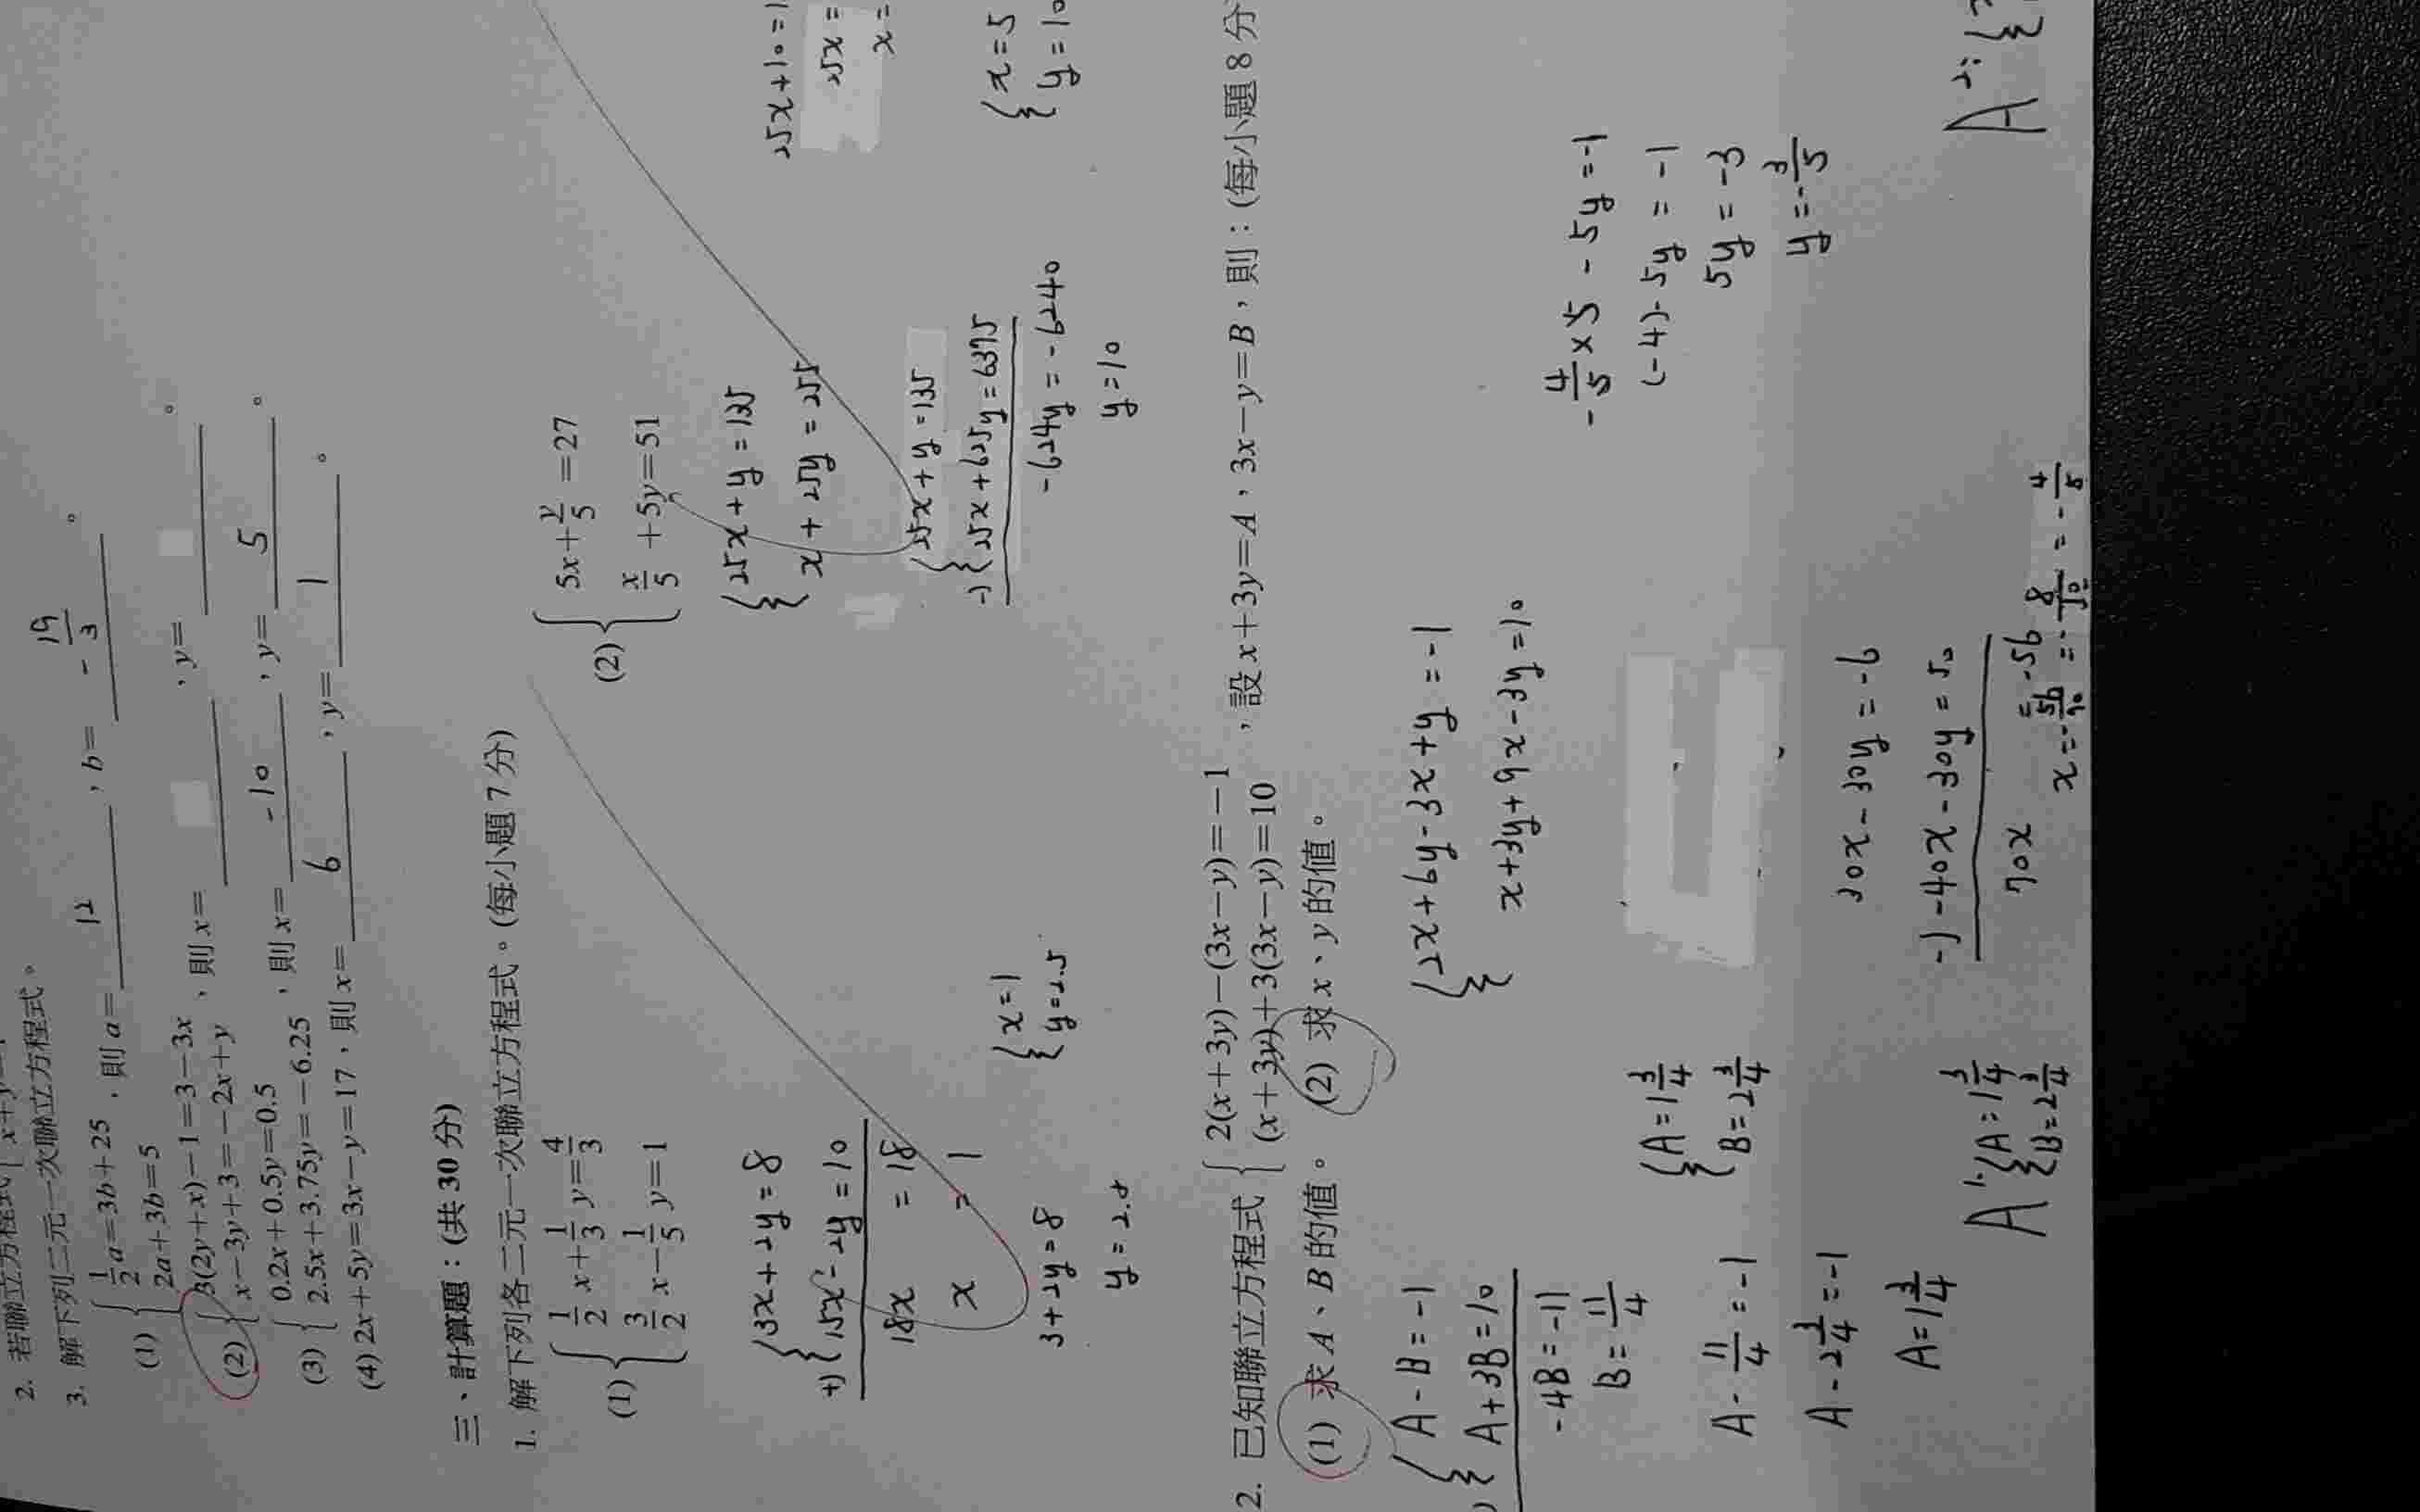 2. 若聯立方程式
3. 解下列二元一次聯立方程式。
(1) { 1/2 a=3b+25
2a+3b=5 ，則 a= 12 ，b= -19/3 。
(2) { 3(2y+x)-1=3-3x
x-3y+3=-2x+y ，則 x= ，y= 。
(3) { 0.2x+0.5y=0.5
2.5x+3.75y=-6.25 ，則 x= -10 ，y= 5 。
(4) 2x+5y=3x-y=17，則 x= 6 ，y= 1 。
三、計算題：(共 30 分)
1. 解下列各二元一次聯立方程式。(每小題 7 分)
(1) { 1/2 x+1/3 y=4/3
3/2 x-1/5 y=1
{ 3x+2y=8
+) { 15x-2y=10
18x = 18
x = 1
3+2y=8
y=2.5
{ x=1
y=2.5
(2) { 5x+y/5=27
x/5+5y=51
{ 25x+y=135
x+25y=255
{ 25x+y=135
-) { 25x+625y=6375
-624y=-6240
y=10
25x+10=1
25x=
x=
{ x=5
y=10
2. 已知聯立方程式 { 2(x+3y)-(3x-y)=-1
(x+3y)+3(3x-y)=10 ，設 x+3y=A，3x-y=B，則：(每小題 8 分
(1) 求 A、B 的值。 (2) 求 x、y 的值。
{ A-B=-1
{ A+3B=10
-4B=-11
B=11/4
A-11/4=-1
A-2 3/4=-1
A=1 3/4
{ A=1 3/4
B=2 3/4
A 1. { A=1 3/4
B=2 3/4
{ 2x+6y-3x+y=-1
x+3y+9x-3y=10
30x-30y=-6
-) -40x-30y=50
70x = -56
x=-56/70=-8/10=-4/5
-4/5×5-5y=-1
(-4)-5y=-1
5y=-3
y=-3/5
A 2: {